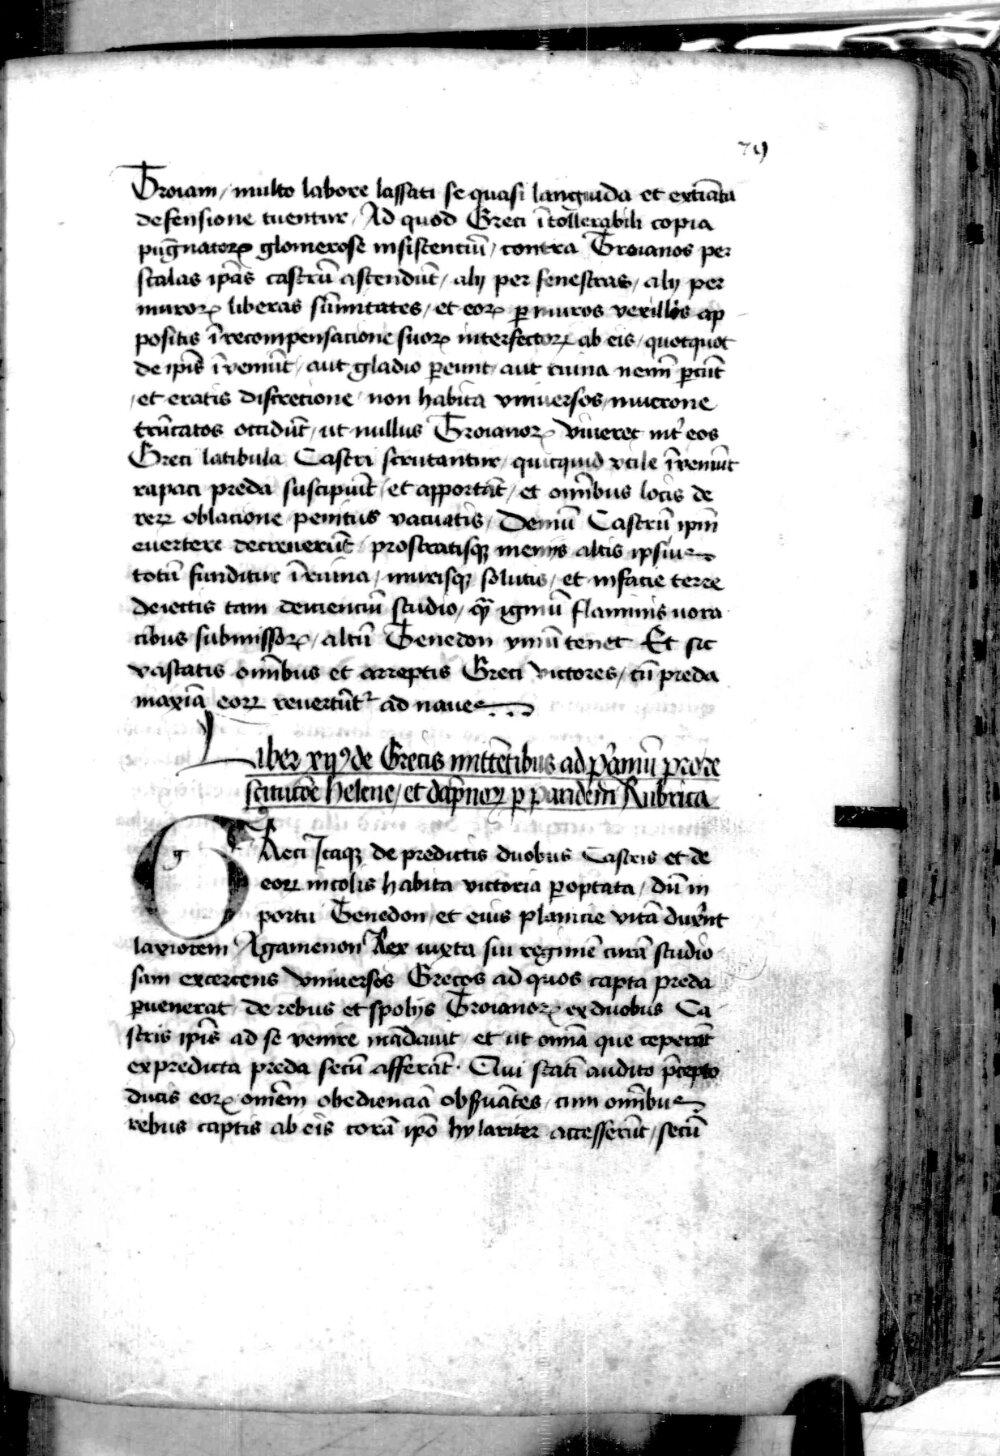 79
Troiam / multo labore lassati se quasi languida et extiata
defensione tuentur / Ad quod Greci ītollerabili copia
pug̅natoꝝ glomerose insistenciū / contra Troianos per
scalas ip̄as castrū ascendūt / alij per fenestras / alij per
muroꝝ liberas sūmitates / et eoꝝ ꝑ muros vexillis ap
positis ī recompensacione suoꝝ interfectoꝝ ab eis / quotquot
de ip̄is īveniūt / aut gladio ꝑeunt / aut ruina nemī ꝑcūt
/ et etatis discretione / non habita vniversos / mucrone
trūcatos occidūt / ut nullus Troianoꝝ viveret int̕ eos
Greci latibula Castri scrutantur / quicquid vtile īveniūt
rapaci preda suscipiūt / et apportāt / et om̄ibus locis de
reꝝ oblacione penitus vacuatis / Demū Castrū ip̄m
evertere decreverūt / prostratisqꝫ menijs altis ipsius
totū funditur ī ruina / murisqꝫ solutis / et in facie terre
deiectis tam deiicienciū studio / qȝ igniū flammis vora
cibus submissoꝝ / altū Tenedon vinū tenet Et sic
vastatis om̄ibus et arreptis Greci victores / cū preda
maxīa eoꝝ revertūt᷑ ad naves
Liber xijꝯ de Grecis mittētibus ad p̄amū pro re
stitucōe Helene / et dāpnoꝝ ꝑ paridem Rubrica
GReci Itaqꝫ de predictis duobus Castris et de
eoꝝ incolis habita victoria ꝑoptata / dū in
portu Tenedon / et eius planicie vitā duxer̄nt
laxiorem Agamenon Rex iuxta sui regiminē curā studio
sam excercens vniversos Grecos ad quos capta preda
ꝑvenerat / de rebus et spolijs Troianoꝝ ex duobus Ca
stris ip̄is ad se venire mādavit et ut omīa que ceperāt
ex predicta preda secū afferāt · Qui statī audito p̄cepto
ducis eoꝝ om̄em obedienciā obsȓvātes / cum om̄ibus
rebus captis ab eis corā ip̄o hylariter accesserūt / secū